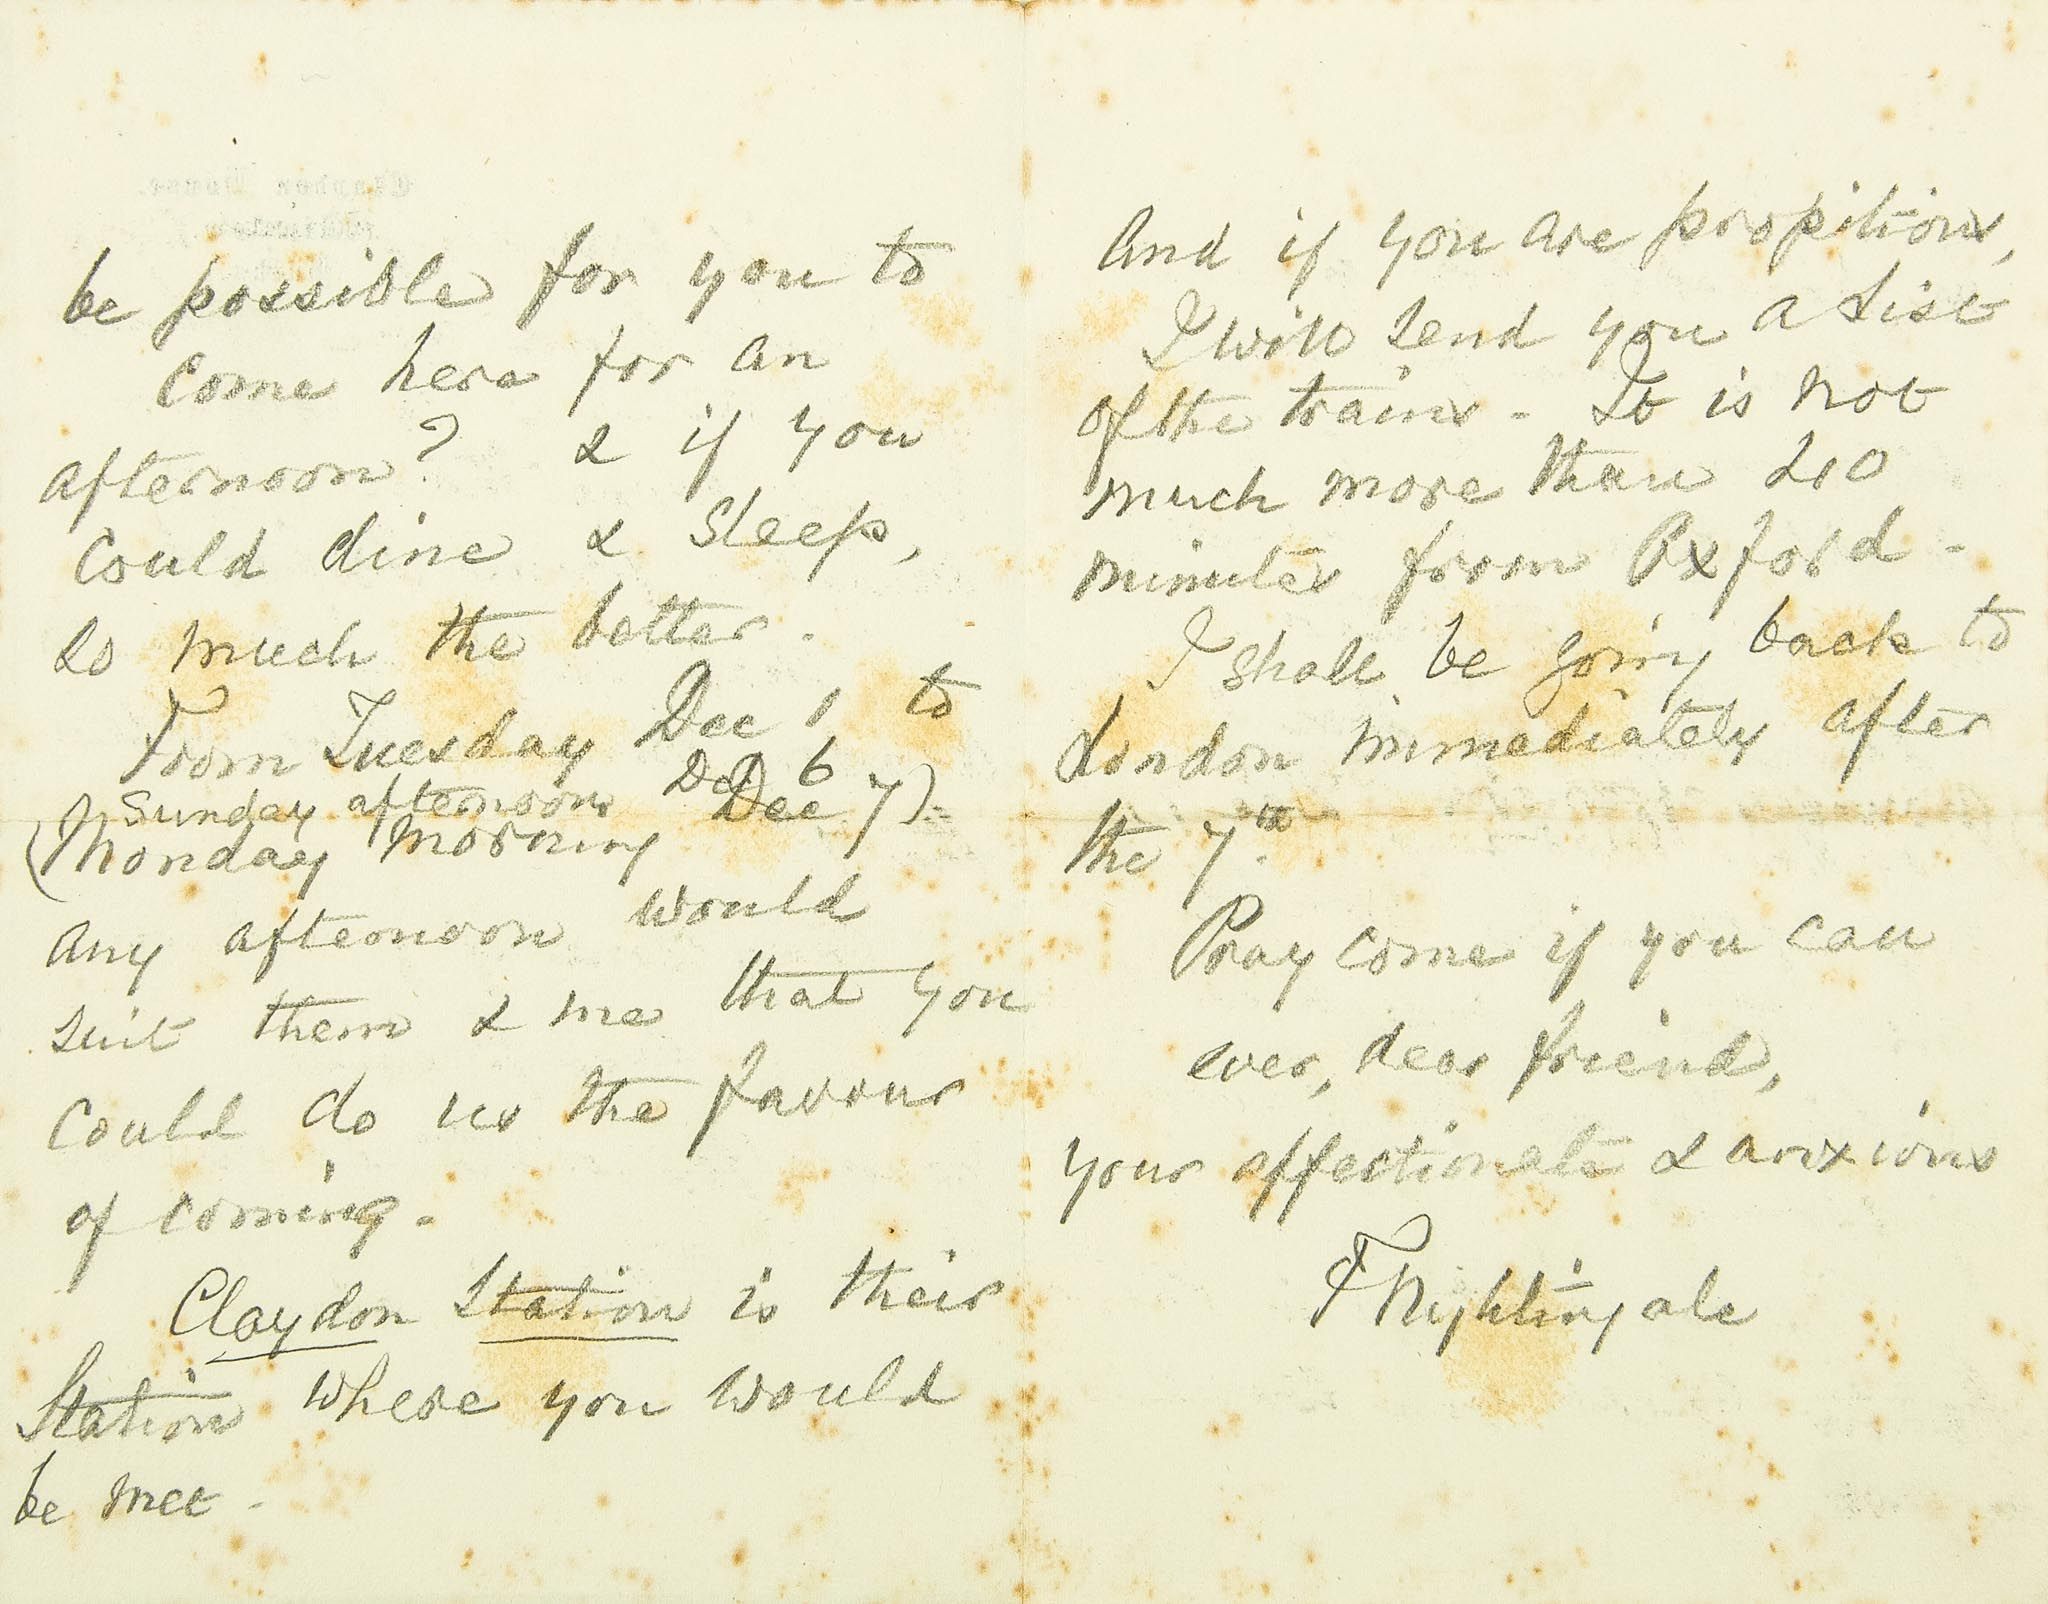 be possible for you to
come here for an
afternoon? & if you
could dine & sleep,
so much the better.
From Tuesday Dec 1 to
Sunday afternoon Dec 6
(Monday morning Dec 7).
any afternoon would
suit them & me that you
could do us the favour
of coming.
Claydon Station is their
Station where you would
be met -
And if you are propitious,
I will send you a list
of the trains - It is not
much more than
minutes from Oxford -
I shall be going back to
London immediately after
the 7th.
Pray come if you can
ever, dear friend,
your affectionate & anxious
F Nightingale